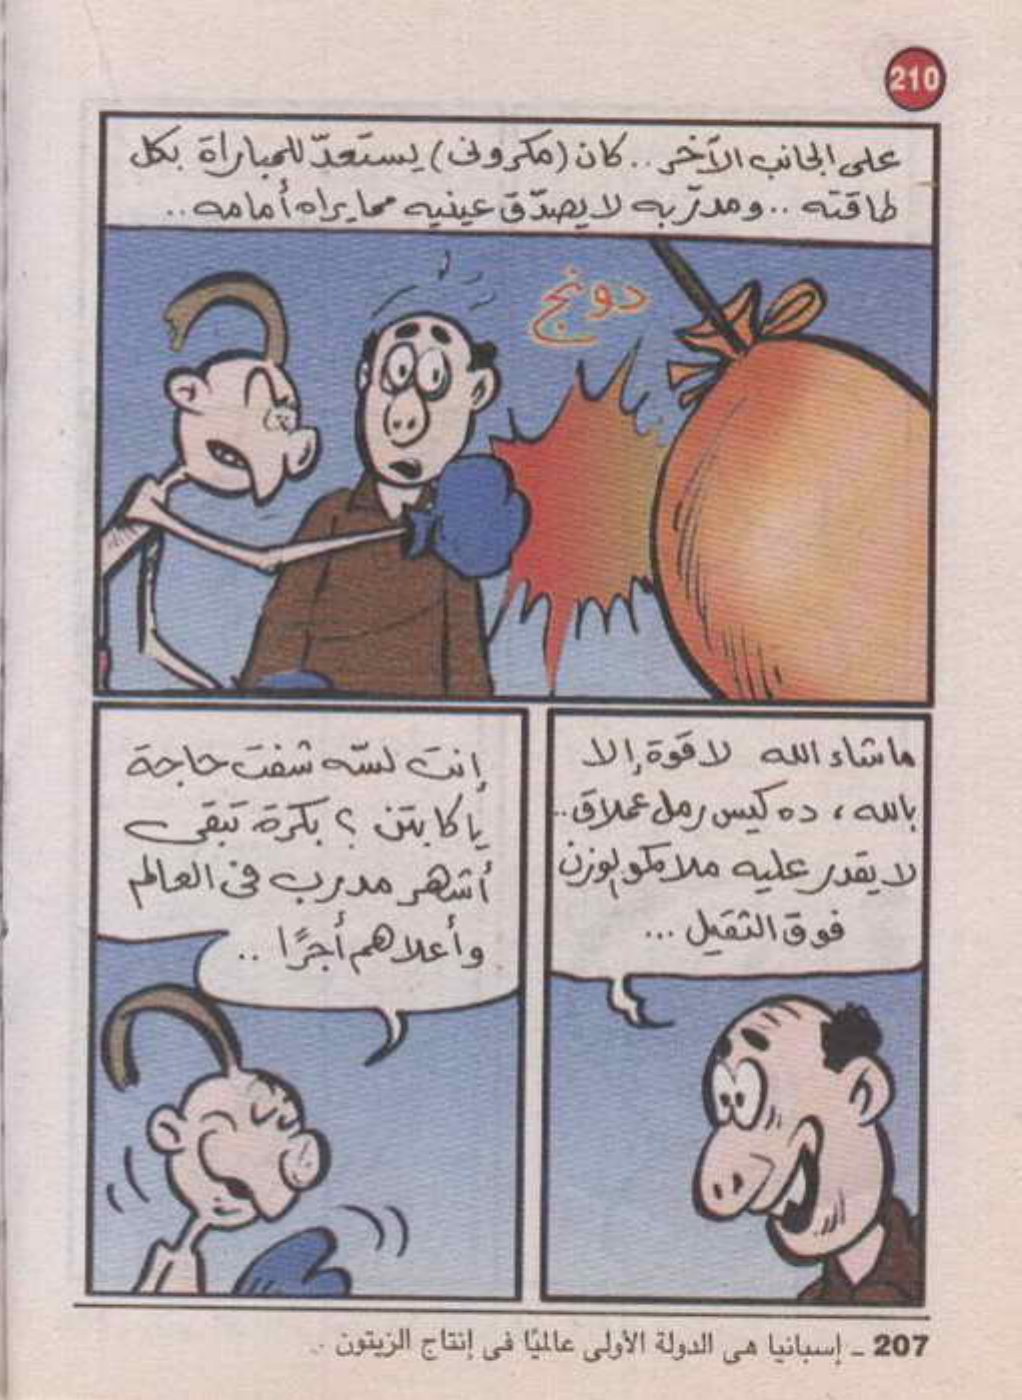 210
على الجانب الآخر .. كان (مكرونى) يستعدّ للمباراة بكل
طاقته .. ومدرّبه لا يصدّق عينيه مما يراه أمامه ..
دونج
ماشاء الله لا قوة إلا
بالله ، ده كيس رمل عملاق ..
لا يقدر عليه ملاكم لوزن
فوق الثقيل ...
إنت لسّه شفت حاجة
يا كابتن ؟ بكرة تبقى
أشهر مدرب فى العالم
وأعلاهم أجرًا ..
207 ـ إسبانيا هى الدولة الأولى عالميًا فى إنتاج الزيتون .